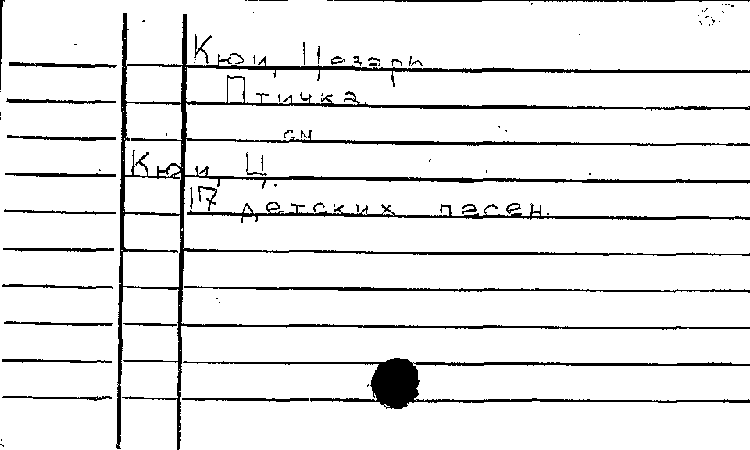 Кюи, Цезарь
Птичка.
см
Кюи, Ц.
17 детских песен.